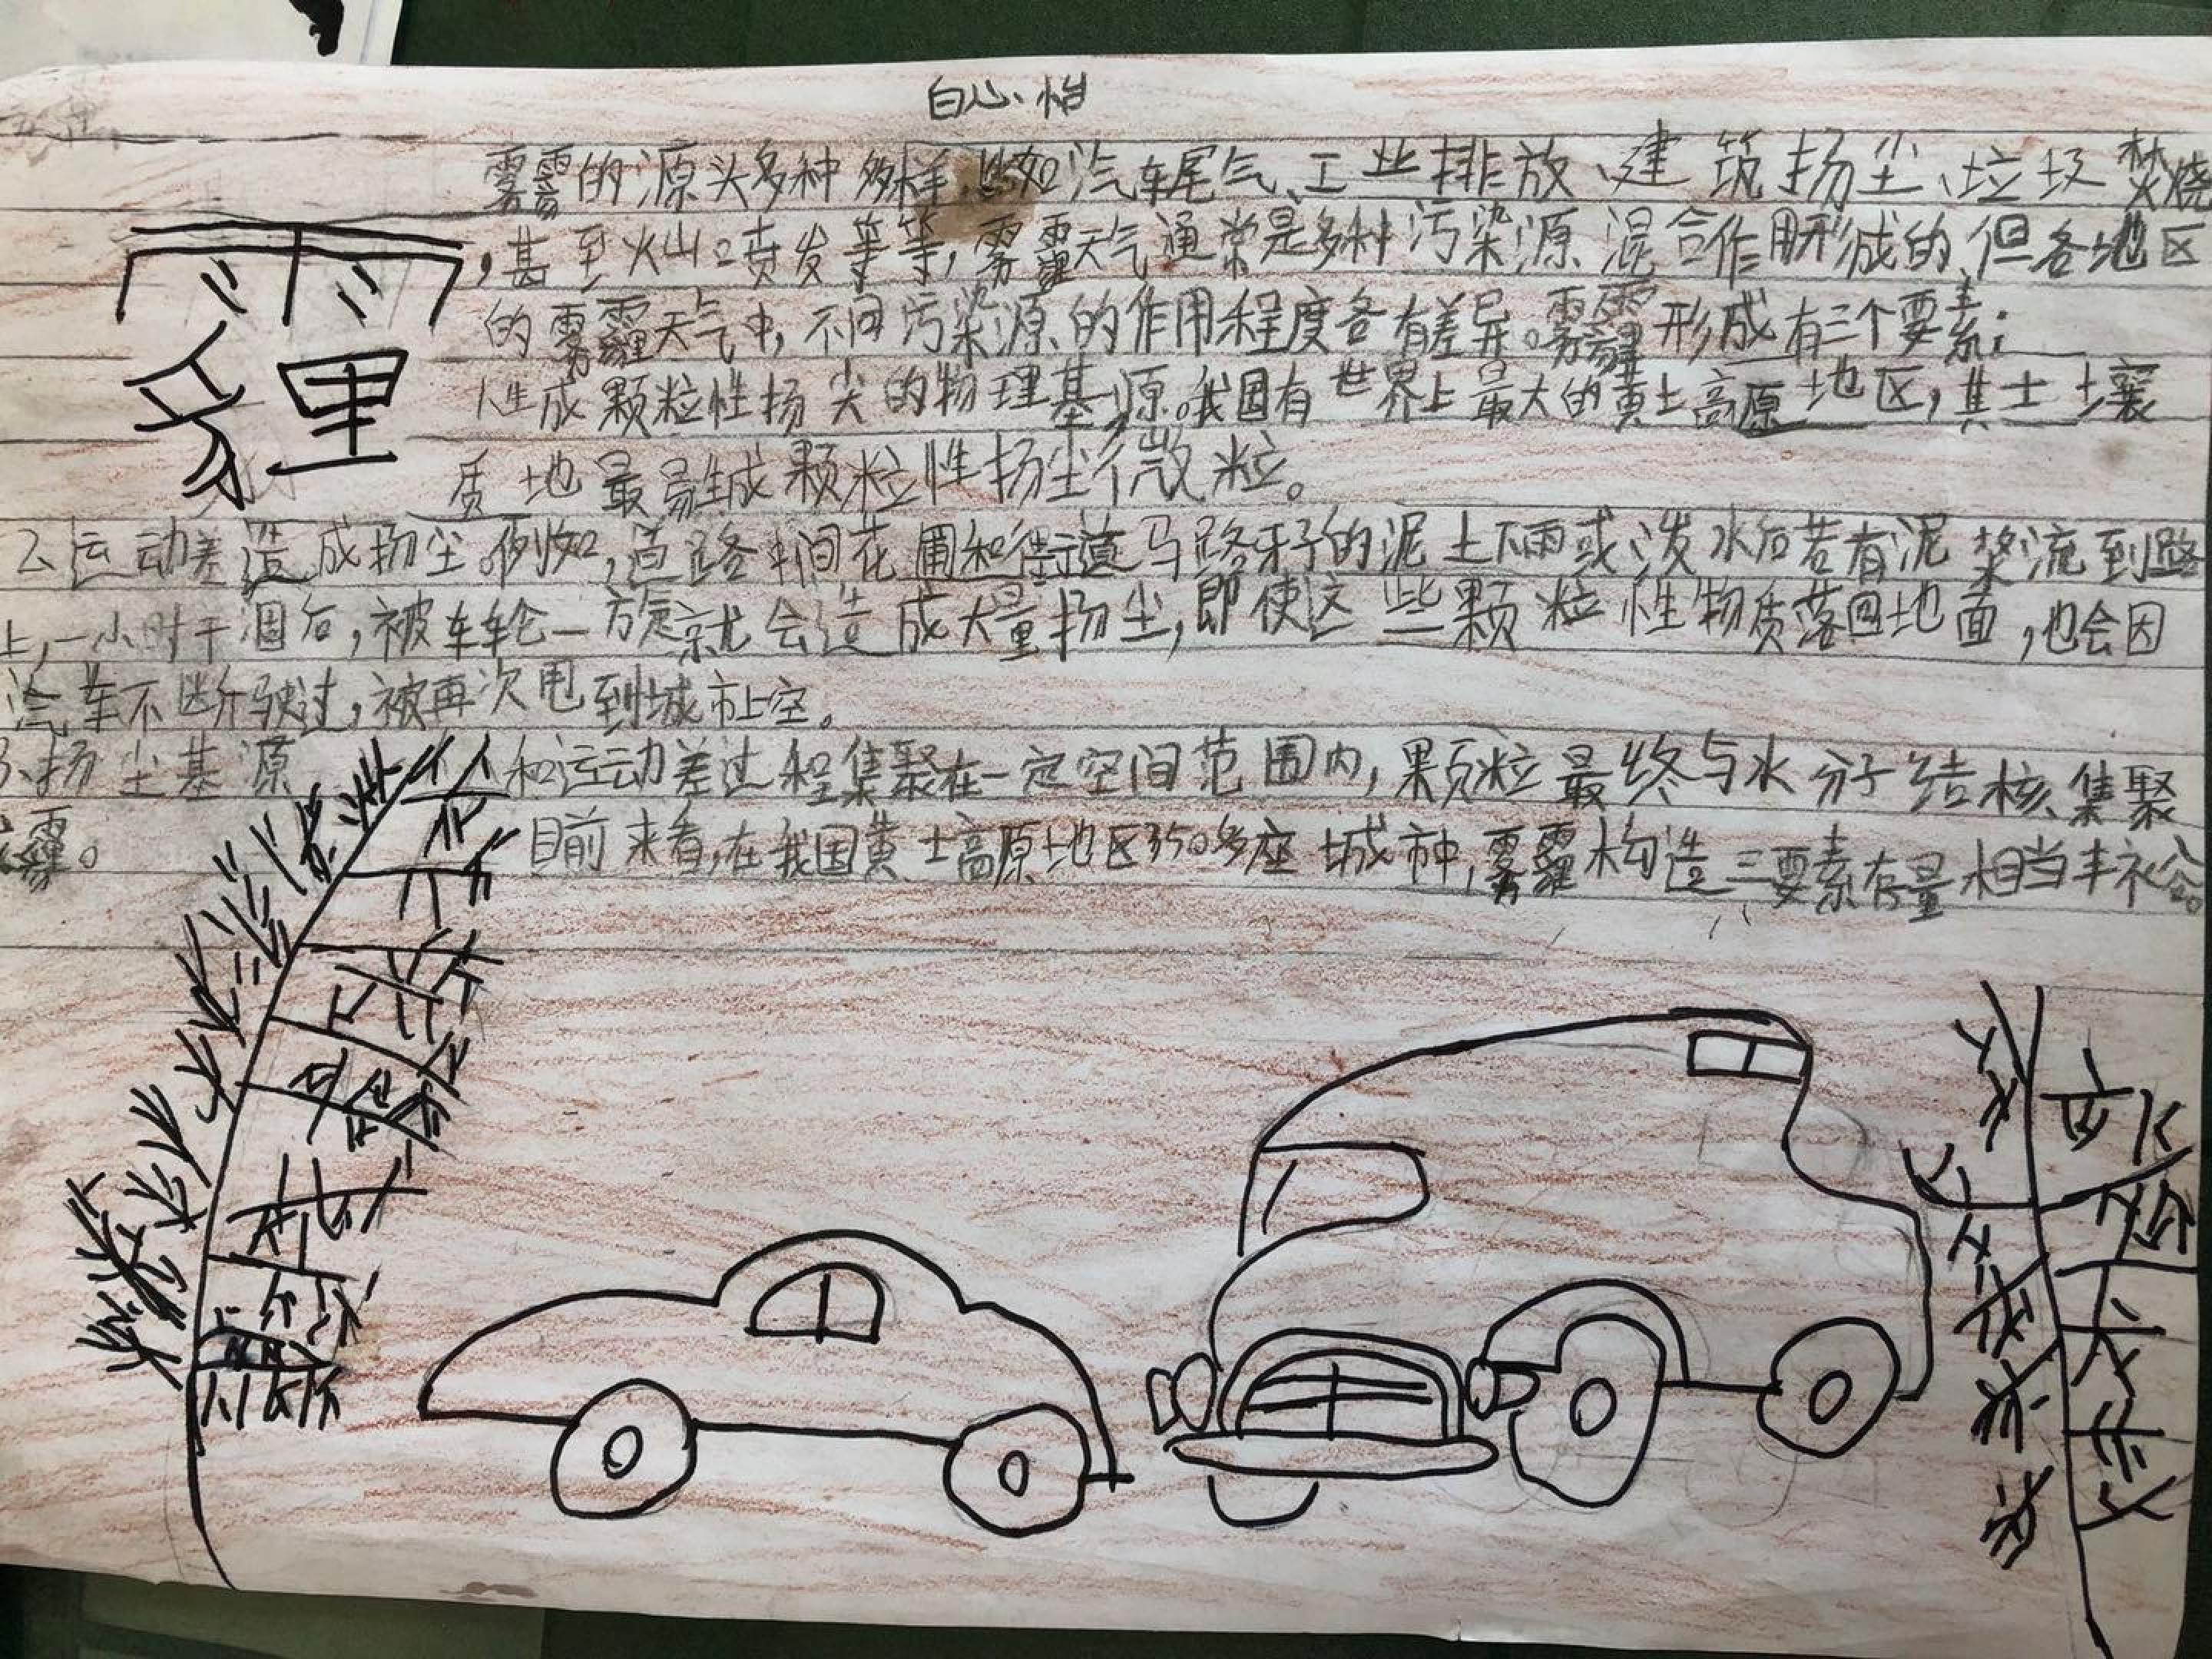 白心怡
霾
雾霾的源头多种多样,比如汽车尾气、工业排放、建筑扬尘、垃圾焚烧
,甚至火山喷发等等,雾霾天气通常是多种污染源混合作用形成的,但各地区
的雾霾天气中,不同污染源的作用程度各有差异。雾霾形成有三个要素:
1、生成颗粒性扬尖的物理基源。我国有世界上最大的黄土高原地区,其土壤
质地最易生成颗粒性扬尘微粒。
2、运动差造成扬尘。例如,道路中间花圃和街道马路牙子的泥土下雨或泼水后若有泥浆流到路
上,一小时干涸后,被车轮一旋就会造成大量扬尘,即使这些颗粒性物质落回地面,也会因
汽车不断驶过,被再次甩到城市上空。
3、扬尘基源和运动差过程集聚在一定空间范围内,颗粒最终与水分子结核集聚
雾霾。目前来看,在我国黄土高原地区350多座城市中,雾霾构造三要素存量相当丰裕。